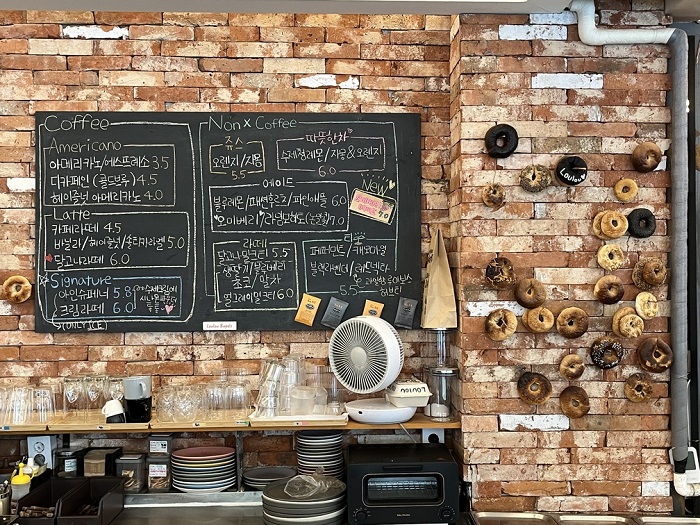 Coffee
Americano
아메리카노/에스프레소 3.5
디카페인 (콜드브루) 4.5
헤이즐넛 아메리카노 4.0
Latte
카페라떼 4.5
바닐라/헤이즐넛/솔티카라멜 5.0
달고나라떼 6.0
Signature
아인슈페너 5.8
크림라떼 6.0
(ONLY ICE)
Non x Coffee
쥬스
오렌지/자몽
5.5
따뜻한차
수제청레몬/자몽&오렌지
6.0
에이드
블루레몬/패션후르츠/파인애플 6.0
7.0
New
라떼
달고나밀크티 5.5
초코/말차
얼그레이밀크티 6.0
티
페퍼민트/캐모마일
5.5
허브티
London Bagels
LOULOU